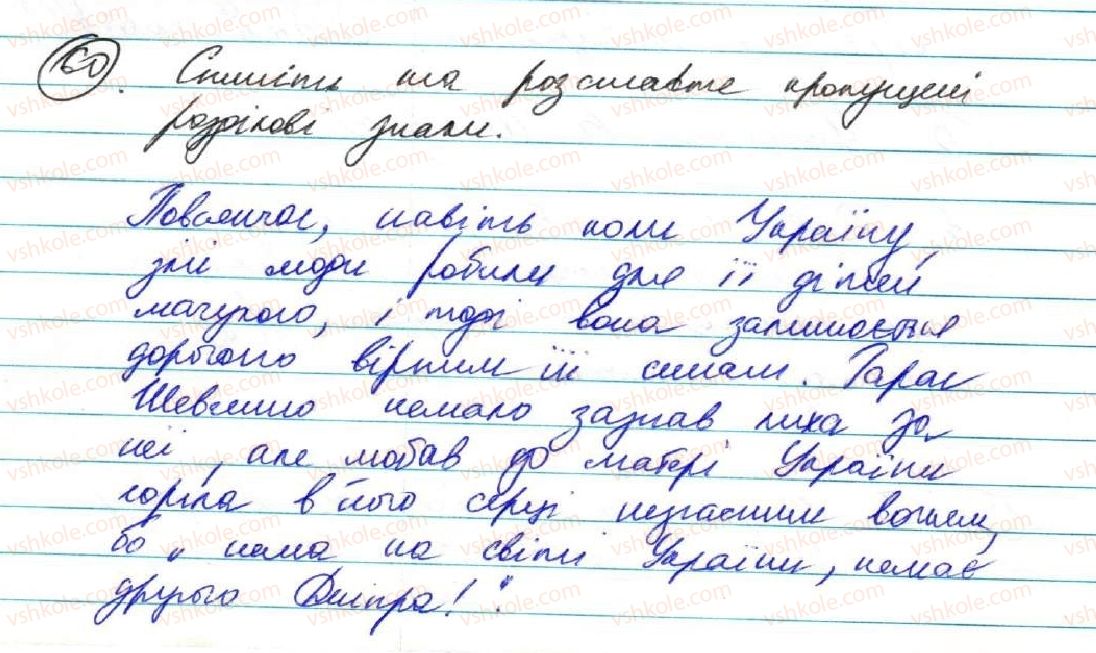 60. Спишіть та розставте пропущені
розділові знаки.
Повсякчас, навіть коли Україну
злі люди робили для її дітей
мачухою, і тоді вона залишається
дорогою вірним їй синам. Тарас
Шевченко чимало зазнав лиха за
неї, але любов до матері України
горіла в його серці незгасним вогнем,
бо „ нема на світі України, немає
другого Дніпра!".